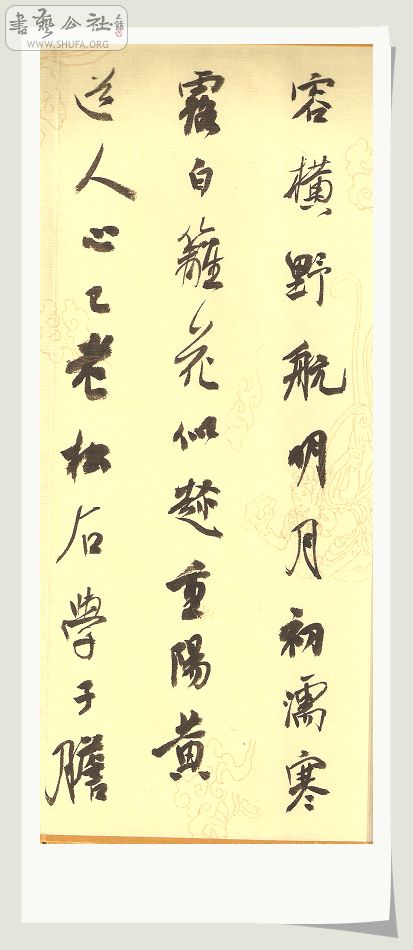 書藝公社
WWW.SHUFA.ORG
容橫野航明月初濡寒
露白籬花似趁重陽黃
道人心已老松石學子瞻